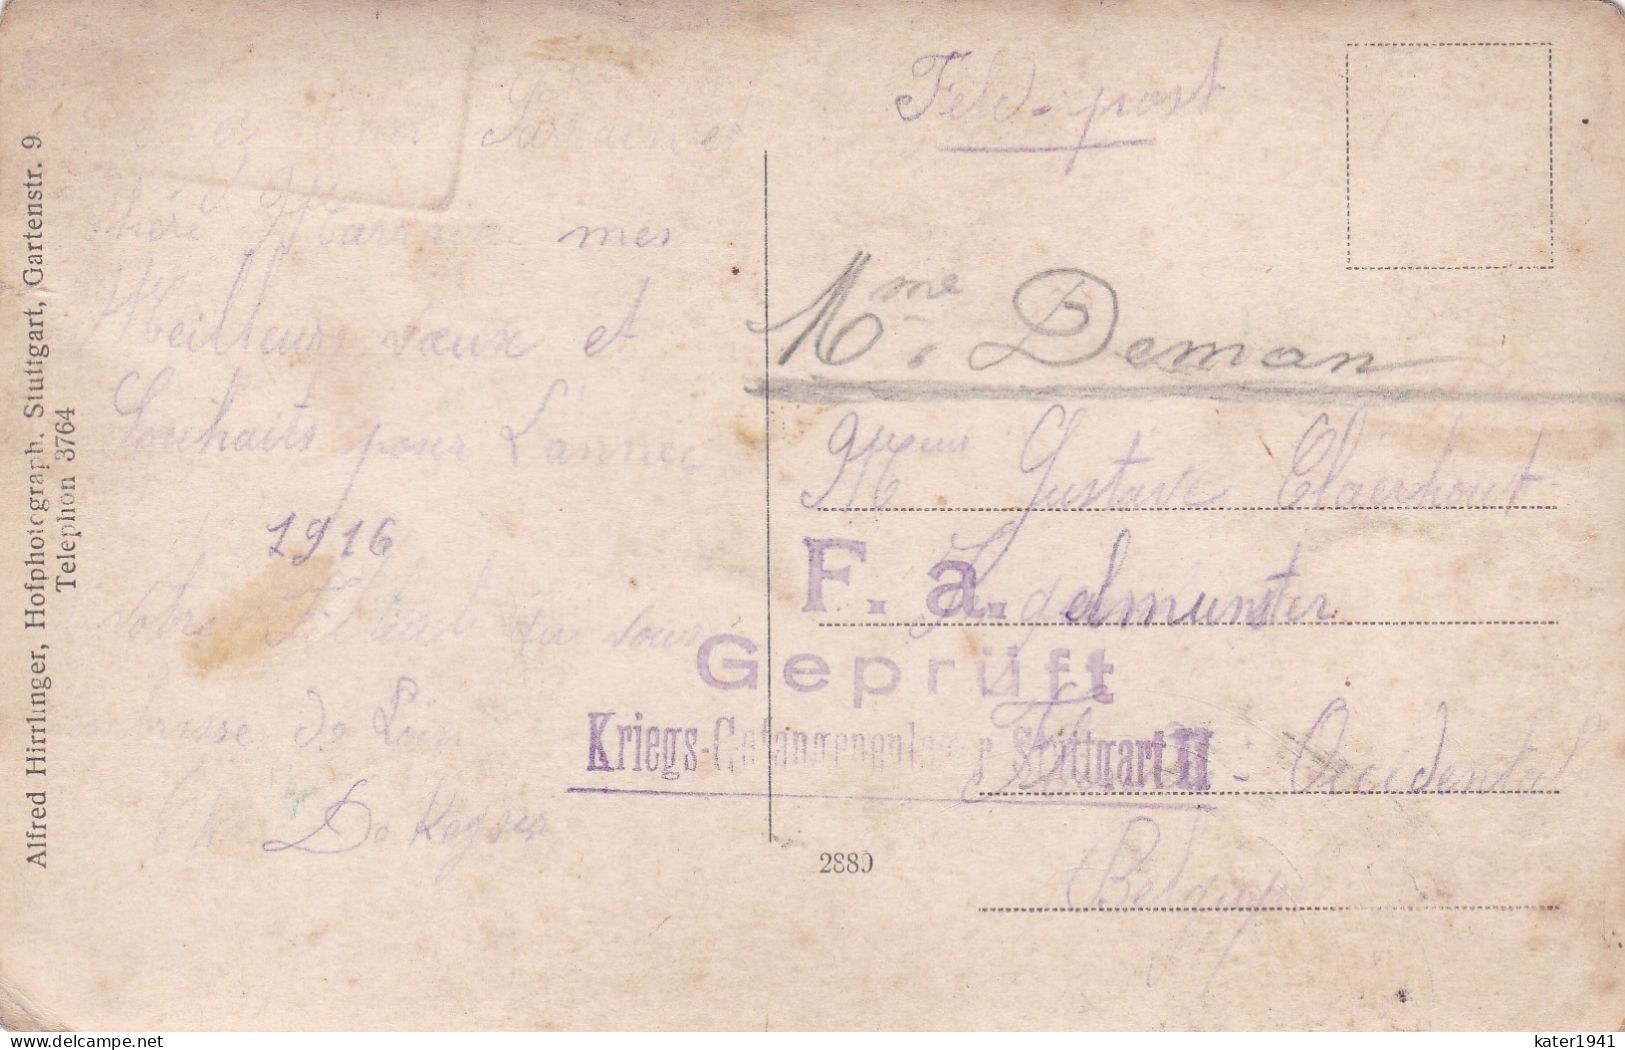 Alfred Hirrlinger, Hofphotograph. Stuttgart, Gartenstr. 9
Telephon 3764
Parrain et
mes
Meilleurs vœux et
Souhaits pour L'année
1916
votre Filleul qui vous
de Loin
De Keyser
Feld-post
Mme. Deman
Gustave Claerhout
F. a.
Geprüft
Kriegs-Gefangenenlager Stuttgart II
Occidental
Belgique
2880
kater1941